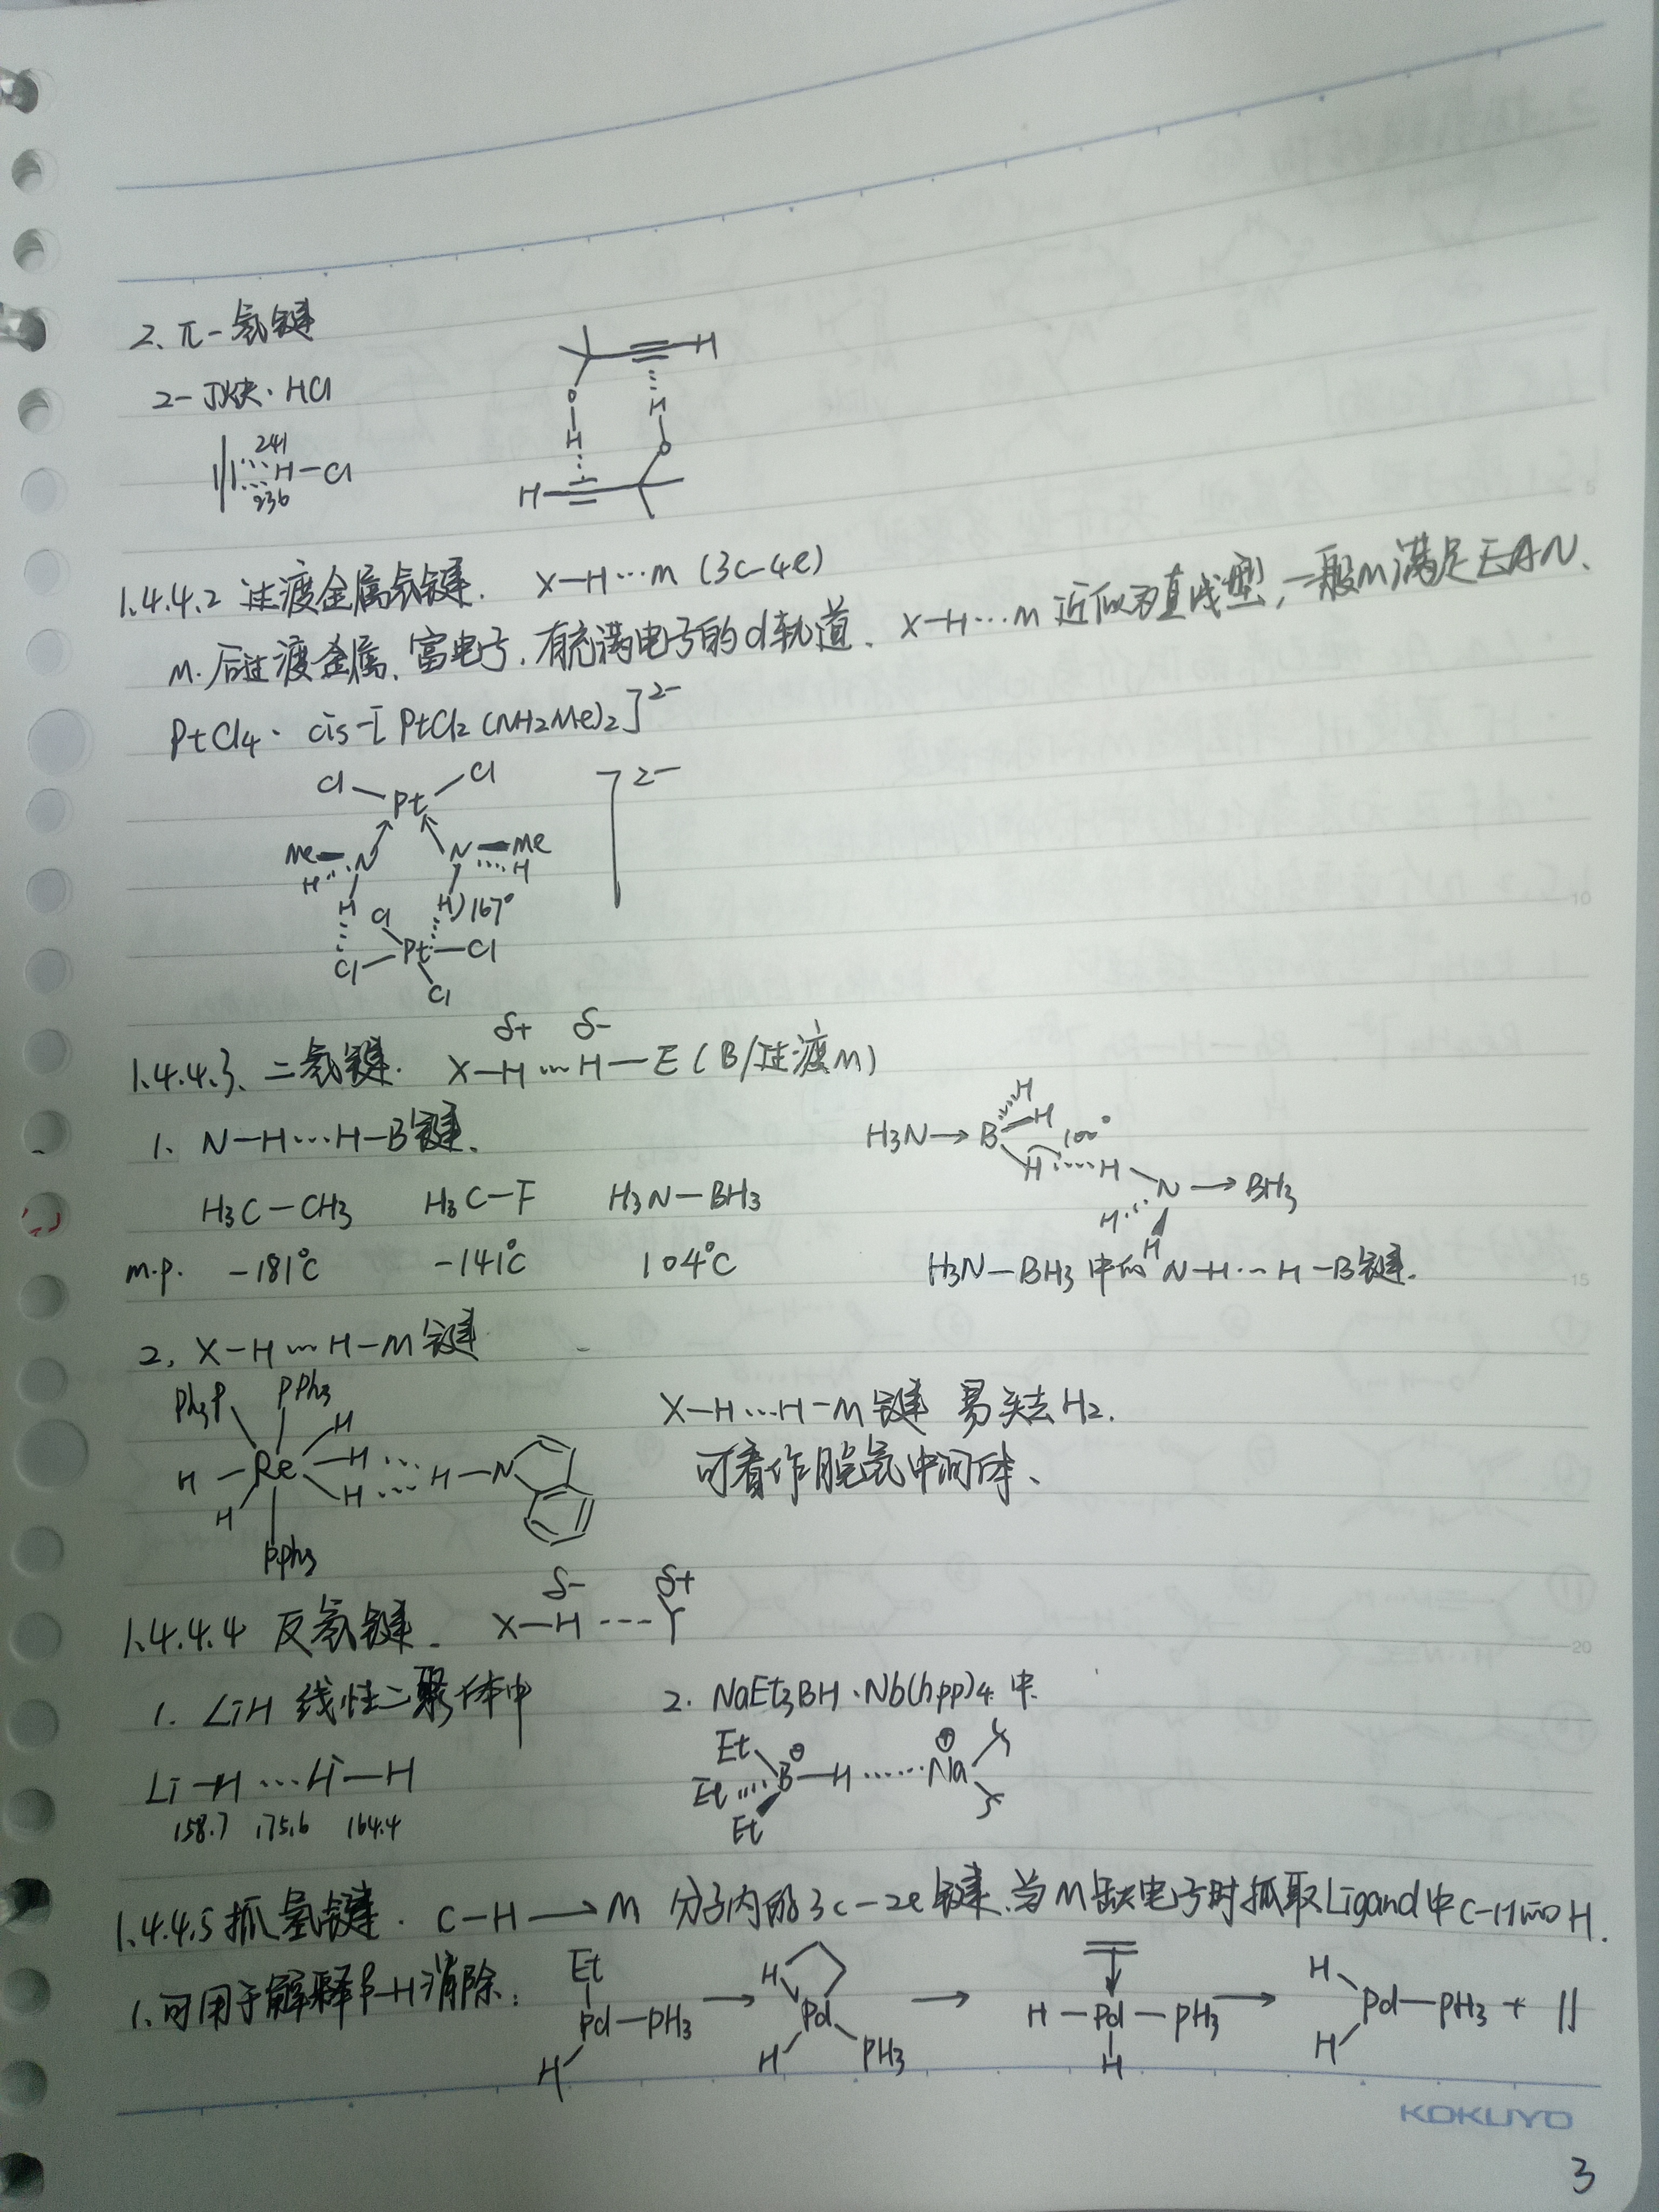 2. π-氢键
2-丁炔·HCl
241
H-Cl
236
≡-H
O
H
H
O
H-≡
1.4.4.2 过渡金属氢键. X-H…M (3c-4e)
M.后过渡金属、富电子,有充满电子的d轨道. X-H…M 近似为直线型,一般M满足EAN.
PtCl4· cis-[PtCl2(NH2Me)2]2-
Cl Pt Cl ]2-
Me N N Me
H H
H Cl H)167°
Cl Pt Cl
Cl
1.4.4.3. 二氢键. X-Hδ+…Hδ--E (B/过渡M)
1. N-H…H-B键.
H3C-CH3 H3C-F H3N-BH3
m.p. -181℃ -141℃ 104℃
H
H3N→B H 100°
H……H
N→BH3
H H
H3N-BH3中的N-H…H-B键.
2. X-H…H-M键
Ph3P PPh3
H
H-Re-H…H-N
H H
PPh3
X-H…H-M键 易失去H2.
可看作脱氢中间体、
1.4.4.4 反氢键. X-Hδ----Yδ+
1. LiH 线性二聚体中
Li-H…Li-H
158.7 175.6 164.4
2. NaEt3BH·Nb(hpp)4 中.
Et
Et B⊖-H……Na⊕
Et
1.4.4.5 抓氢键. C-H→M 分子内的3c-2e键.当M缺电子时抓取Ligand中C-H的H.
1.可用于解释β-H消除:
Et Pd-PH3 H
→ H Pd PH3 H
→ H-Pd-PH3 H
→ H Pd-PH3 H + ||
KOKUYO
3